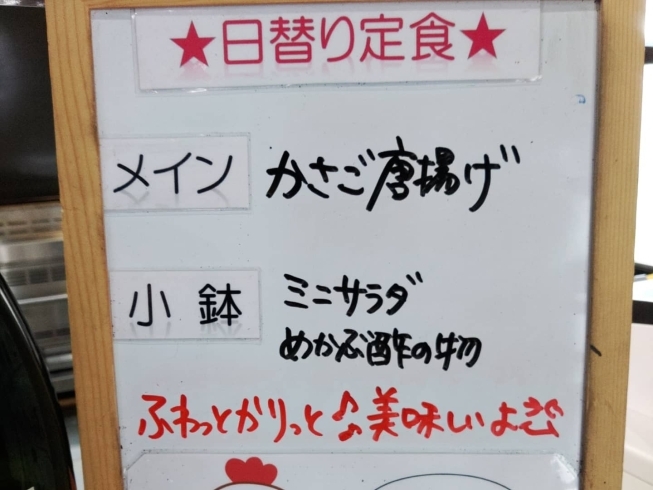 ★日替り定食★
メイン かさご唐揚げ
小鉢 ミニサラダ
めかぶ酢の物
ふわっとかりっと♪♪美味しいよ